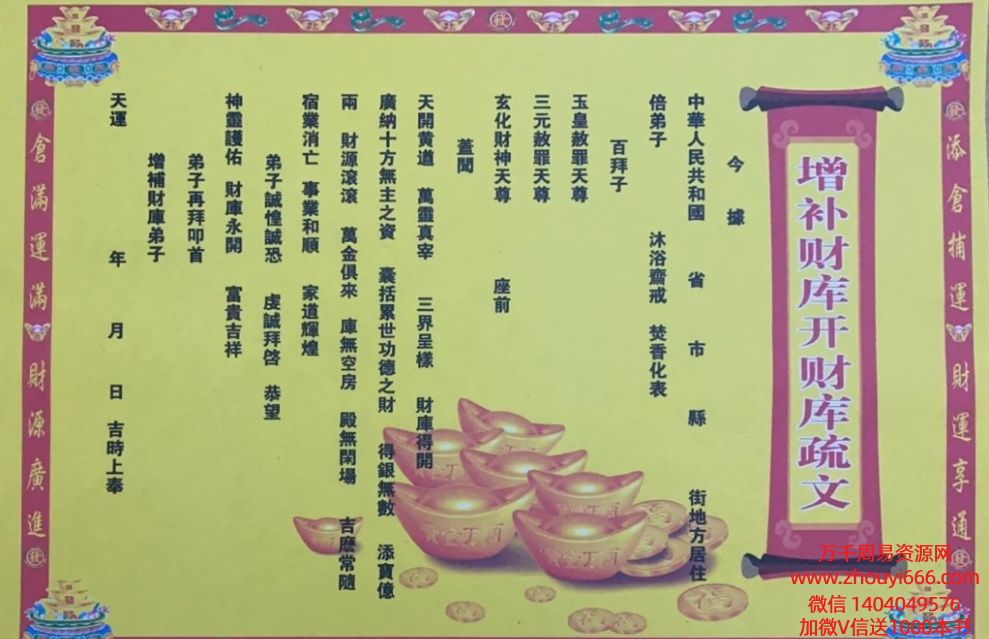 增补财库开财库疏文
今據
中華人民共和國 省 市 縣 街地方居住
倍弟子 沐浴齋戒 焚香化表
百拜子
玉皇赦罪天尊
三元赦罪天尊
玄化財神天尊 座前
蓋聞
天開黄道 萬靈真宰 三界呈樣 財庫得開
廣纳十方無主之資 囊括累世功德之財 得銀無數 添寶億
兩 財源滾滾 萬金俱來 庫無空房 殿無閑場 吉慶常隨
宿業消亡 事業和順 家道輝煌
弟子誠惶誠恐 虔誠拜啓 恭望
神靈護佑 財庫永開 富貴吉祥
弟子再拜叩首
增補財庫弟子
天運 年 月 日 吉時上奉
添倉補運 財運享通
倉滿運滿 財源廣進
万千周易资源网
www.zhouyi666.com
微信 1404049576
加微V信送1000本书